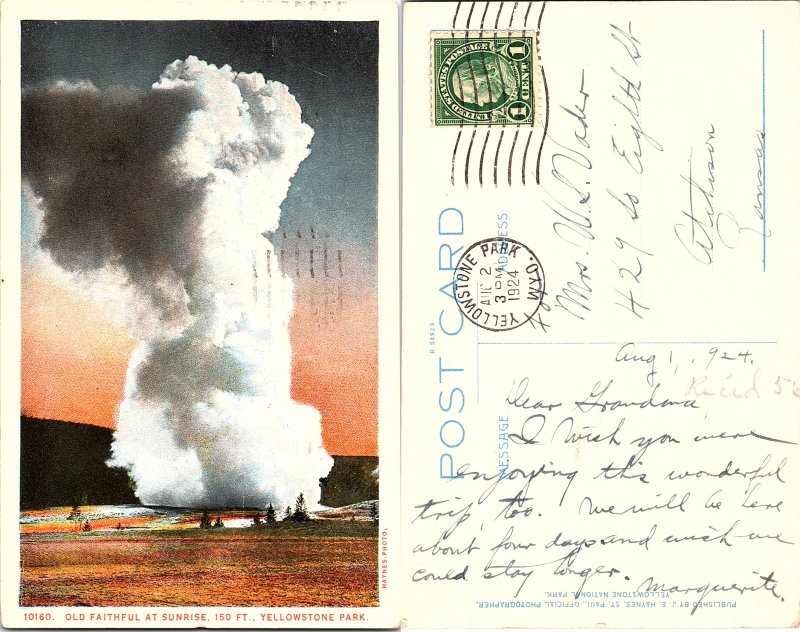 10160. OLD FAITHFUL AT SUNRISE, 150 FT., YELLOWSTONE PARK.
HAYNES-PHOTO.
UNITED STATES POSTAGE
1 CENT 1
YELLOWSTONE PARK WYO.
AUG 2
3 PM
1924
POST CARD
ADDRESS
MESSAGE
R-54923
Mrs. W. L. Vader
429 So Eighth St
Atchison
Kansas
Aug 1, 924.
Rec'd 5
Dear Grandma,
I wish you were
enjoying this wonderful
trip, too. We will be here
about four days and wish we
could stay longer.
Marguerite.
PUBLISHED BY J. E. HAYNES, ST. PAUL, OFFICIAL PHOTOGRAPHER,
YELLOWSTONE NATIONAL PARK.